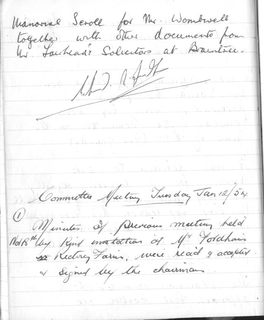 Manorial Scroll for Mr. Wombwell
together with other documents from
Mr. Solicitors at Braintree.
Committee Meeting Tuesday Jan 12/54
① Minutes of previous meeting held
Nov 18th by kind invitation of Mr Fordham
Farm, were read & accepted
& signed by the chairman